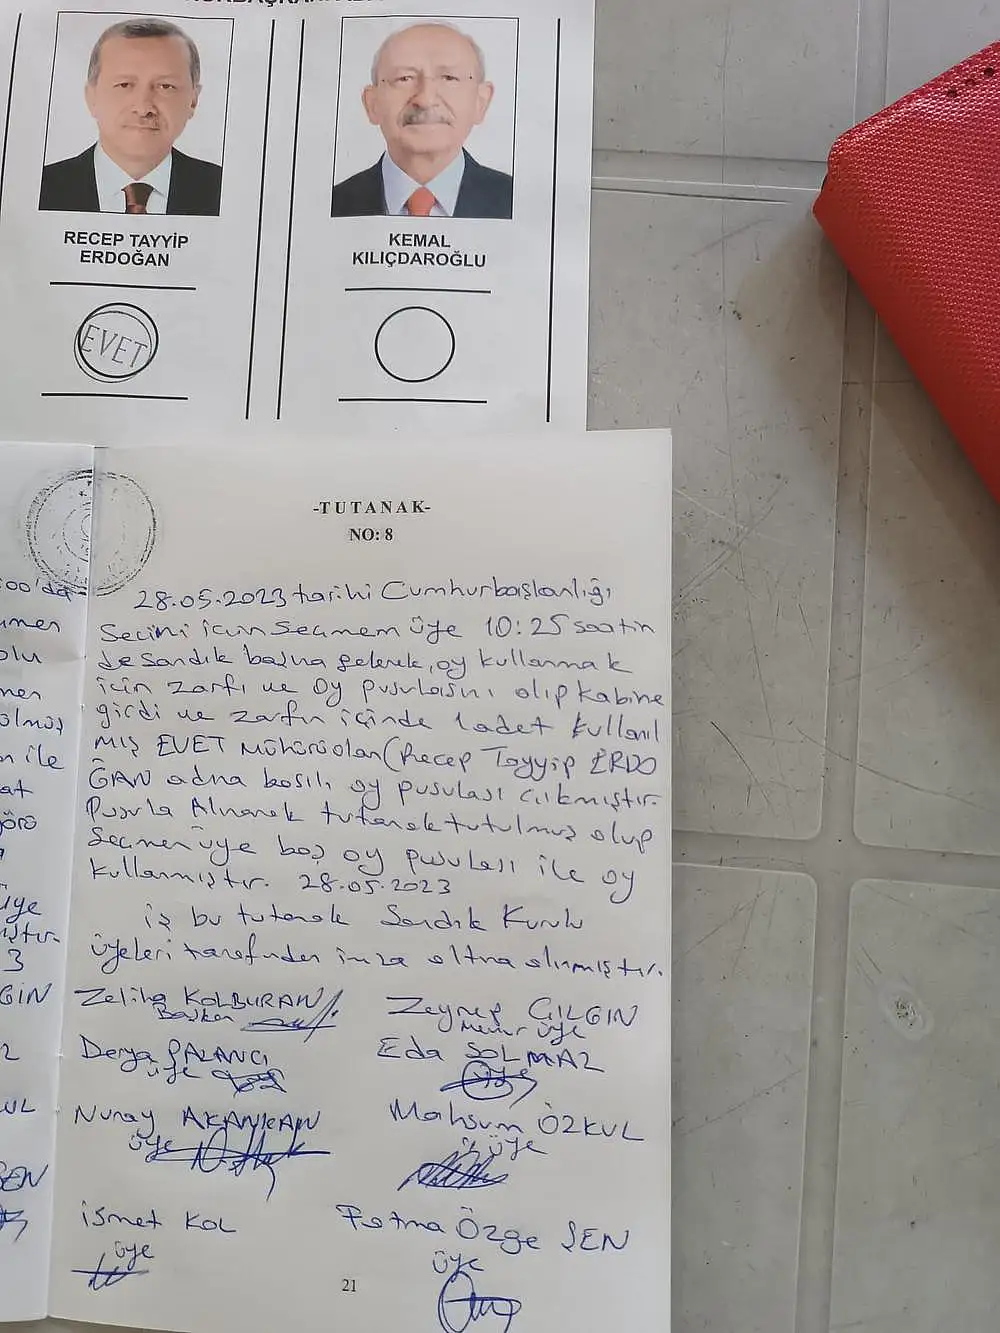 RECEP TAYYİP
ERDOĞAN
KEMAL
KILIÇDAROĞLU
EVET
-TUTANAK-
NO: 8
28.05.2023 tarihi Cumhurbaşkanlığı
Seçimi için Seçmen üye 10:25 saatin
de sandık başına gelerek, oy kullanmak
için zarfı ve oy pusulasını alıp kabine
girdi ve zarfın içinde 1 adet kullanıl
mış EVET Mühürü olan (Recep Tayyip ERDO
ĞAN adına basılı oy pusulası çıkmıştır.
Pusula Alınarak tutanak tutulmuş olup
Seçmen üye boş oy pusulası ile oy
kullanmıştır. 28.05.2023
iş bu tutanak Sandık Kurulu
üyeleri tarafından imza altına alınmıştır.
Zeliha KOLBURAN
Başkan
Zeynep ÇILGIN
Memur üye
Derya
üye
Eda SOLMAZ
üye
Nuray
üye
Mahsum ÖZKUL
üye
ismet KOL
üye
Fatma Özge ŞEN
üye
21
:00'da
olu
ülmüş
ile
at
üye
3
GIN
UL
ŞEN